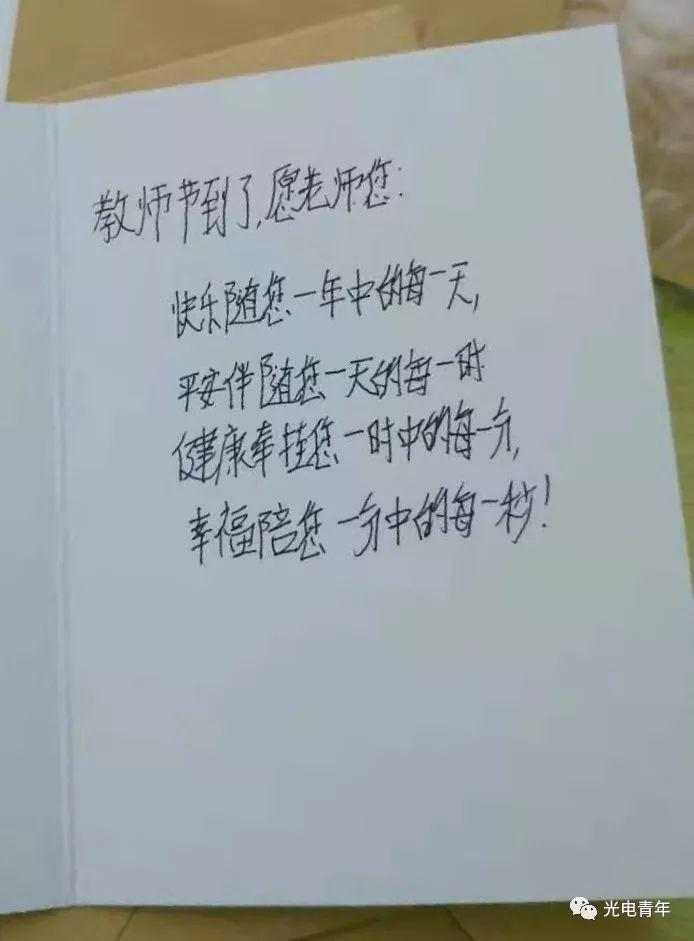 教师节到了,愿老师您:
快乐随您一年中的每一天,
平安伴随您一天的每一时
健康奉挂您一时中的每一分,
幸福陪您一分中的每一秒!
光电青年